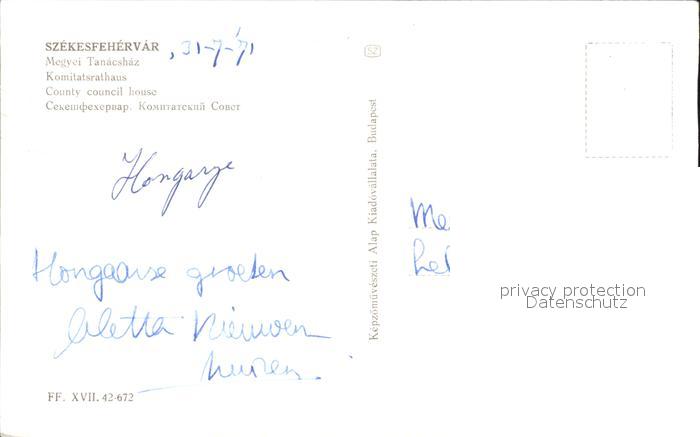 SZÉKESFEHÉRVÁR , 31-7-'71
Megyei Tanácsház
Komitatsrathaus
County council house
Секешфехервар. Комитатский Совет
Hongarije
Hongaarse groeten
Aletta Nieuwen
huizen.
FF. XVII. 42-672
SZ
Képzőművészeti Alap Kiadóvállalata, Budapest
Me
he
privacy protection
Datenschutz